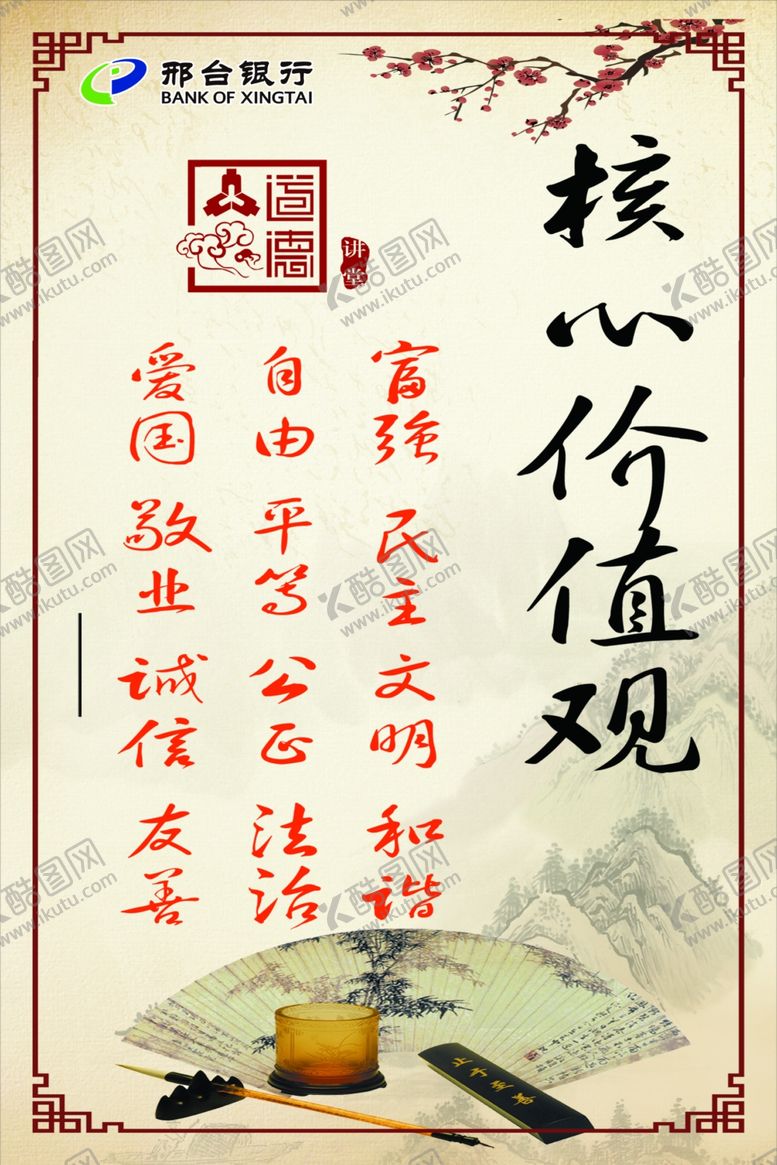 邢台银行
BANK OF XINGTAI
核心价值观
道德
讲堂
富强 民主 文明 和谐
自由 平等 公正 法治
爱国 敬业 诚信 友善
止于至善
酷图网
www.ikutu.com